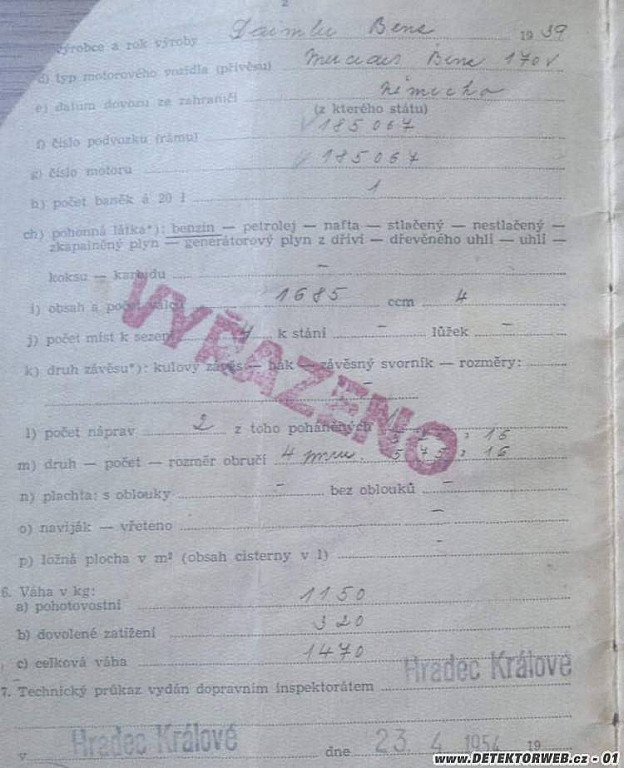 2
výrobce a rok výroby Daimler Benz 1939
d) typ motorového vozidla (přívěsu) Mercedes Benz 170V
e) datum dovozu ze zahraničí Německa
(z kterého státu)
f) číslo podvozku (rámu) 185067
g) číslo motoru 185067
h) počet baněk á 20 l 1
ch) pohonná látka*): benzin — petrolej — nafta — stlačený — nestlačený —
zkapalněný plyn — generátorový plyn z dříví — dřevěného uhlí — uhlí —
koksu — karbidu –
i) obsah a počet válců 1685 ccm 4
j) počet míst k sezení 4 k stání – lůžek –
k) druh závěsu*): kulový závěs — hák — závěsný svorník — rozměry:
–
VYŘAZENO
l) počet náprav 2 z toho poháněných
m) druh — počet — rozměr obručí 4 575 × 16
n) plachta: s oblouky – bez oblouků –
o) naviják — vřeteno –
p) ložná plocha v m² (obsah cisterny v l) –
6. Váha v kg:
a) pohotovostní 1150
b) dovolené zatížení 320
c) celková váha 1470
7. Technický průkaz vydán dopravním inspektorátem Hradec Králové
v Hradec Králové dne 23. 4. 1954 19
www.DETEKTORWEB.cz - 01